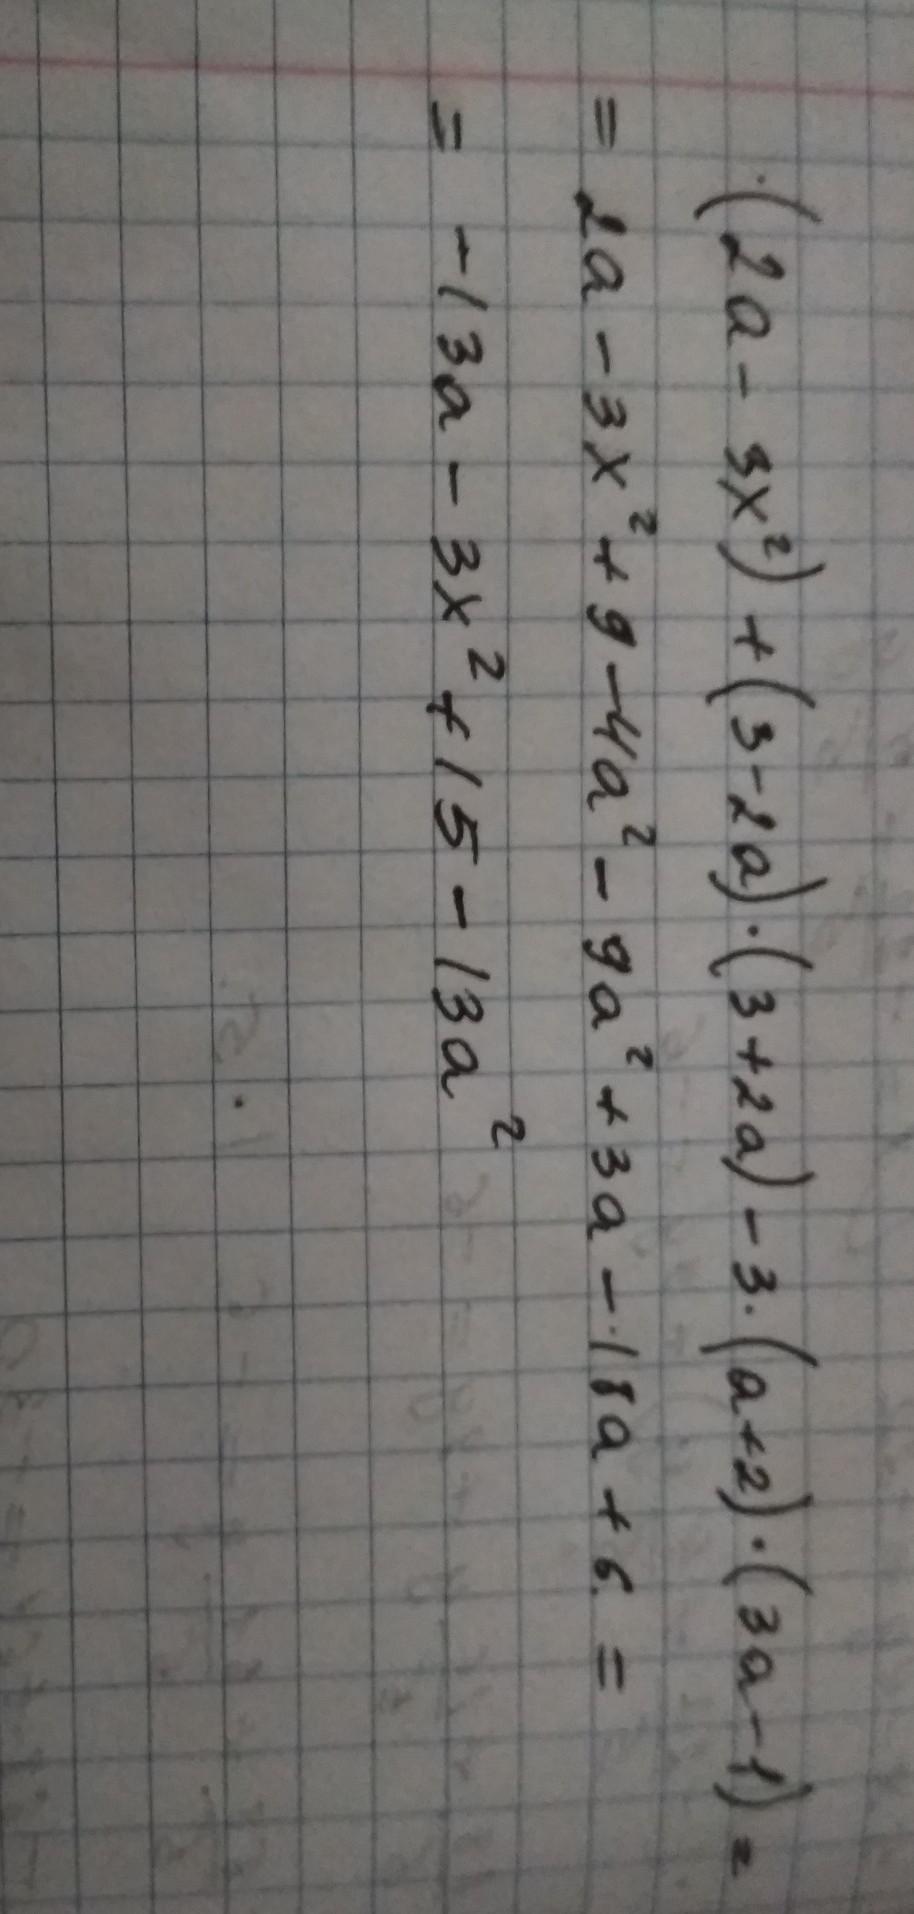 (2a - 3x²) + (3 - 2a) · (3 + 2a) - 3 · (a + 2) · (3a - 1) =
= 2a - 3x² + 9 - 4a² - 9a² + 3a - 18a + 6 =
= -13a - 3x² + 15 - 13a²